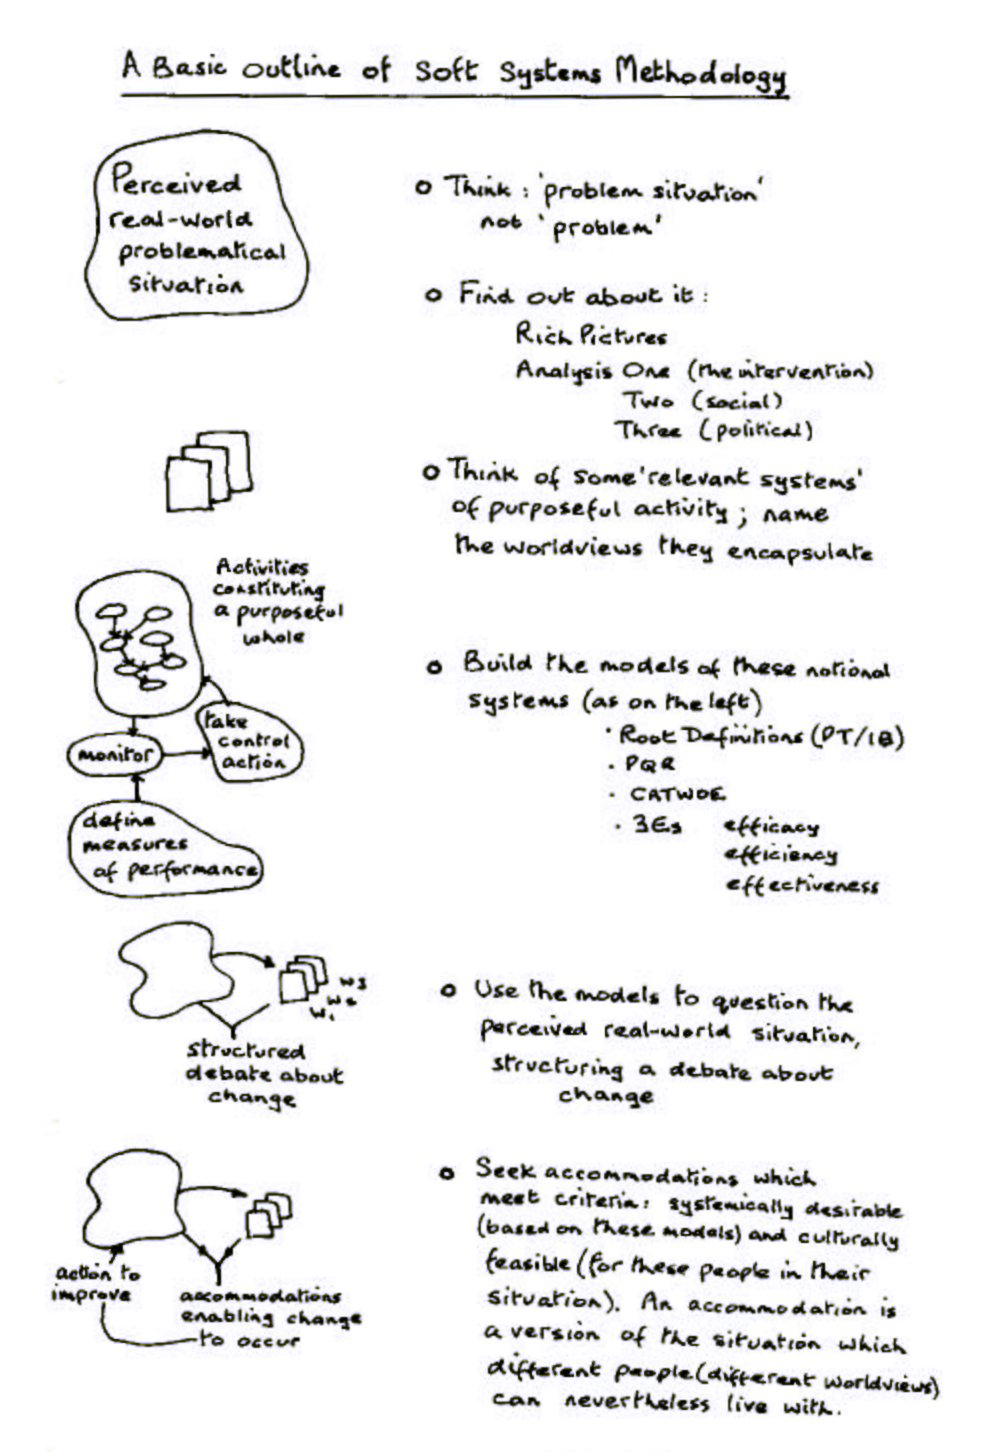 A Basic outline of Soft Systems Methodology
Perceived
real-world
problematical
situation
o Think : 'problem situation'
not 'problem'
o Find out about it :
Rich Pictures
Analysis One (the intervention)
Two (social)
Three (political)
o Think of some 'relevant systems'
of purposeful activity ; name
the worldviews they encapsulate
Activities
constituting
a purposeful
whole
monitor
take
control
action
define
measures
of performance
o Build the models of these notional
systems (as on the left)
· Root Definitions (PT/IB)
· PQR
· CATWOE
· 3Es efficacy
efficiency
effectiveness
W3
W2
W1
structured
debate about
change
o Use the models to question the
perceived real-world situation,
structuring a debate about
change
action to
improve
accommodations
enabling change
to occur
o Seek accommodations which
meet criteria: systemically desirable
(based on these models) and culturally
feasible (for these people in their
situation). An accommodation is
a version of the situation which
different people (different worldviews)
can nevertheless live with.